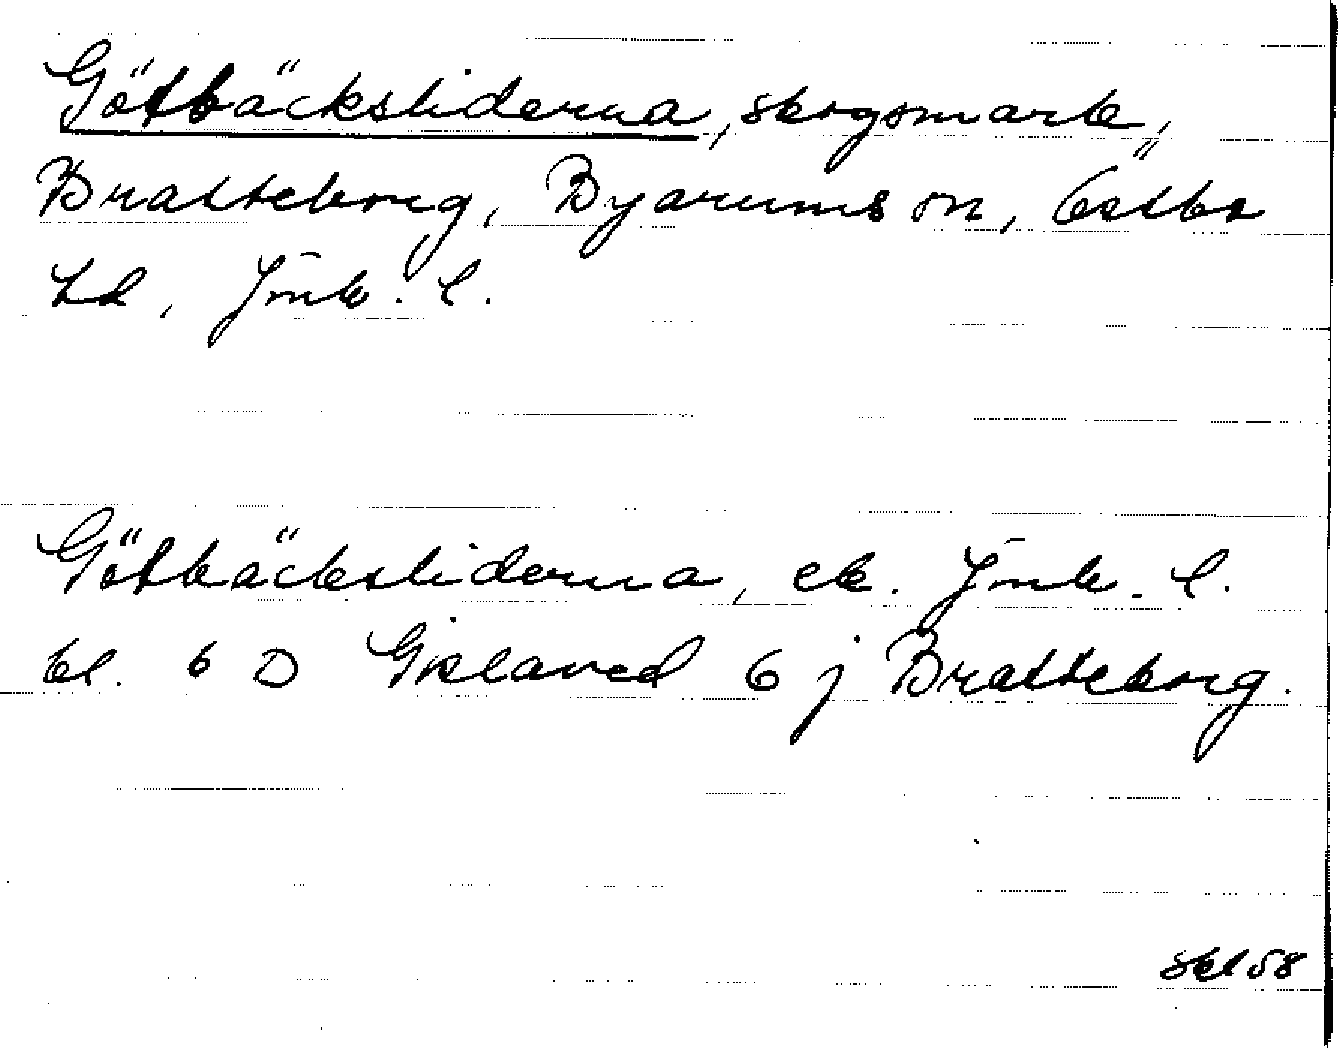 Götbäcksliderna, skogsmark,
Bratteborg, Byarums sn, Östbo
hd, Jönk. l.
Götbäcksliderna, ek. Jönk. l.
bl. 6 D Gislaved 6 j Bratteborg.
Skl 58